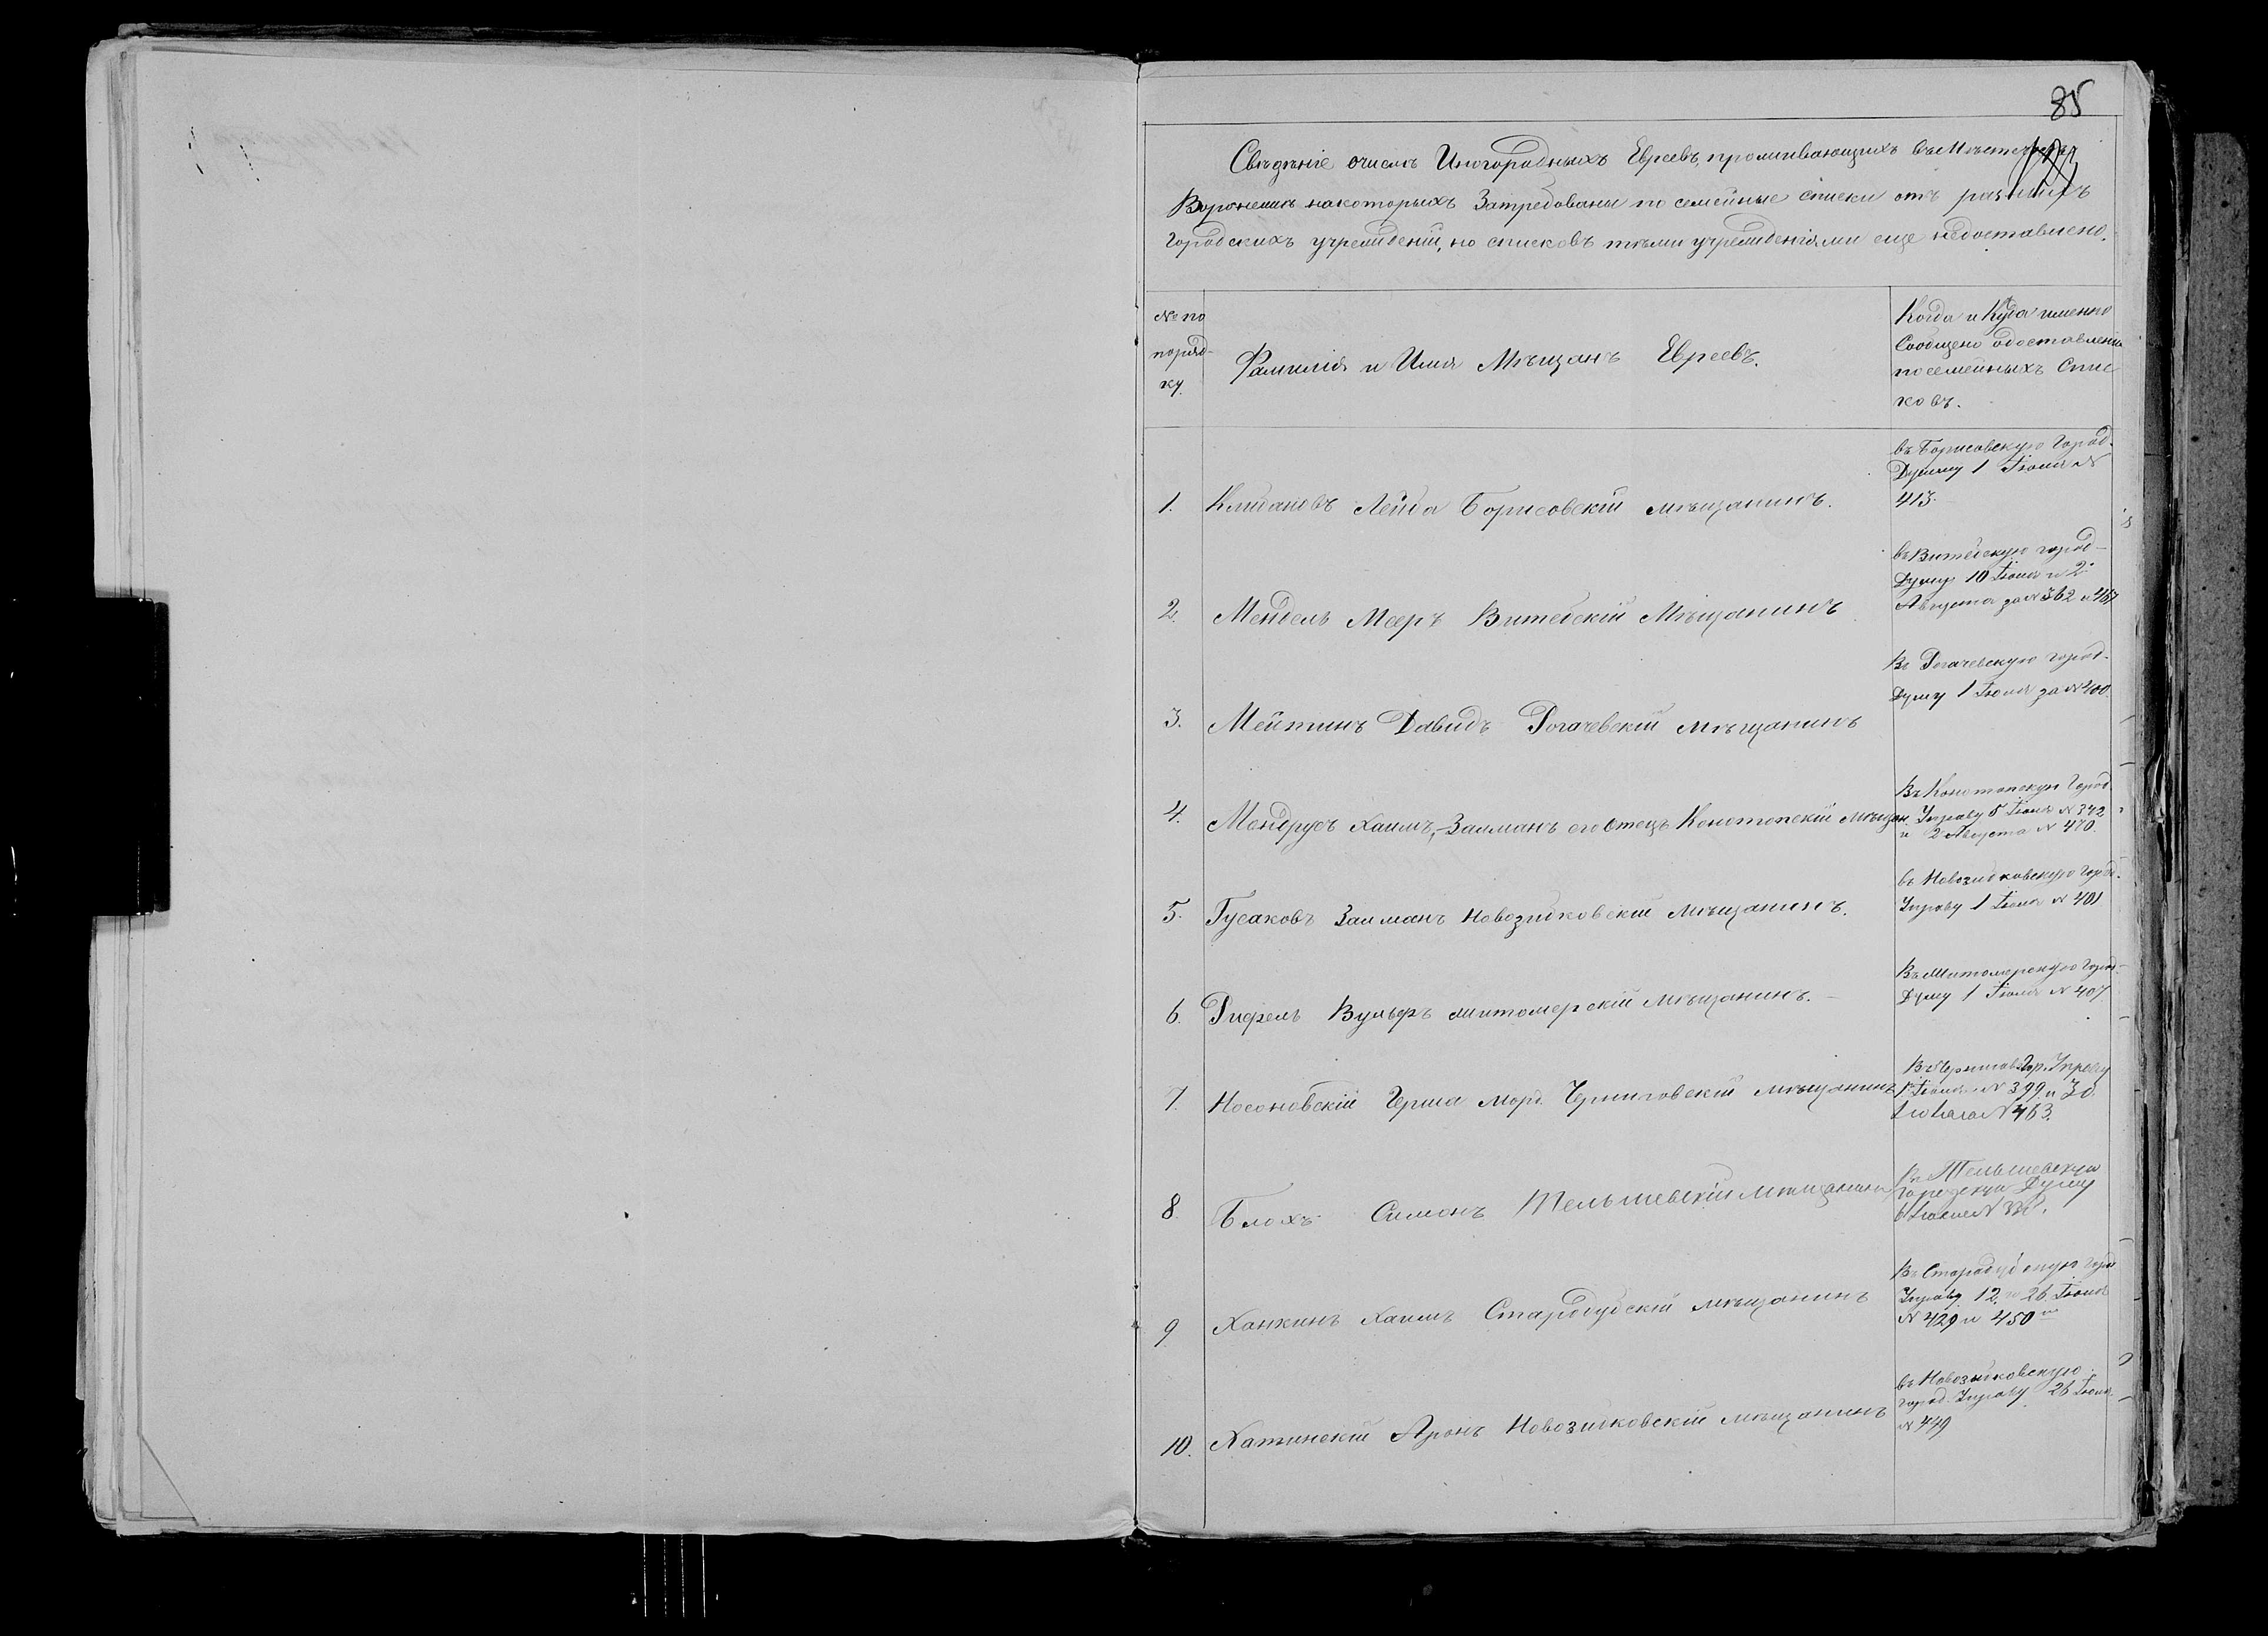 85
Свѣдѣніе очислѣ Иногородныхъ Евреевъ, проживающихъ въ Мѣстечкѣ
Воронежѣ накоторыхъ Затребованы по семейные списки отъ разныхъ
городскихъ учрежденій, но списковъ тѣми учрежденіями еще недоставлено.
№ по
поряд-
ку.
Фамилія и Имя Мѣщанъ Евреевъ.
Когда и Куда именно
Сообщено одоставленіи
посемейныхъ Спис
ковъ.
1. Клидановъ Лейба Борисовскій мѣщанинъ.
въ Борисовскую Город.
Думу 1 Іюня №
413.
2. Мендель Мееръ Витебскій Мѣщанинъ
въ Витебскую город-
Думу 10 Іюня и 2.
Августа за № 362 и 467
3. Мейтинъ Давидъ Рогачевскій мѣщанинъ
Въ Рогачевскую город-
Думу 1 Іюля за № 400.
4. Мендрусъ Хаимъ, Залманъ его отецъ Конотопскій мѣщан.
Въ Конотопскую Город
Управу 5 Іюня № 342
и 2 Августа № 470.
5. Гусаковъ Залманъ Новозибковскій мѣщанинъ.
въ Новозибковскую Город.
Управу 1 Іюля № 401
6. Рифель Вульфъ житомерскій мѣщанинъ.
Въ Житомерскую Город-
Думу 1 Іюля № 407
7. Носоновскій Герша Морд. Черниговскій мѣщанинъ
В Чернигов. Гор. Управу
1 Іюля № 399 и 30.
Іюля № 463.
8. Блохъ Симонъ Тельшевскій мѣщанинъ
Въ Тельшевскую
Городскую Думу
№
9. Ханкинъ Хаимъ Стародубскій мѣщанинъ
Въ Стародубскую Горо
Управу 12 и 26 Іюля
№ 429 и 450
10. Хатинскій Аронъ Новозибковскій мѣщанинъ
въ Новозибковскую
город. Управу 26 Іюля
№ 449